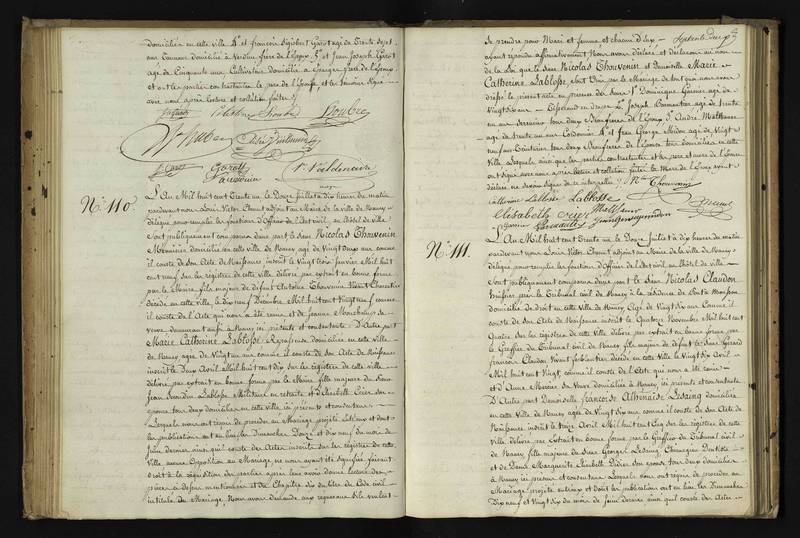 domiciliés en cette ville 4° et françois Sigisbert Garot agé de Trente Sept
ans Tanneur domicilié à Verdun frère de l'Epouse 5° et Jean Joseph Garot
agé de Cinquante ans Cultivateur domicilié à
et ont les parties contractantes le père de l'Epouse, et les témoins Signé
avec nous après lecture et collation faites
Garot
N° 110.
L'An Mil huit cent Trente un le Douze juillet à dix heures du matin
pardevant nous Louis Victor adjoint au Maire de la ville de Nancy
délégué pour remplir les fonctions d'Officier de l'état civil, en l'hôtel de ville
Sont publiquement comparus d'une part le Sieur Nicolas Thouvenin
Menuisier domicilié en cette ville de Nancy agé de Vingt Deux ans comme
il conste de son Acte de Naissance inscrit le Vingt trois Janvier Mil huit
cent neuf sur les registres de cette ville délivré par extrait en bonne forme
par le Maire, fils majeur de défunt Antoine Thouvenin Vivant Charpentier
décédé en cette ville, le dix neuf Décembre Mil huit cent vingt neuf comme
il conste de l'Acte qui nous a été remis et de Jeanne
veuve demeurant aussi à Nancy ici présente et consentante. D'Autre part
Marie Catherine Lablosse Repasseuse domiciliée en cette ville
de Nancy agée de Vingt un ans comme il conste de son Acte de Naissance
inscrit le deux Avril Mil huit cent dix sur les registres de cette ville
délivré par extrait en bonne forme par le Maire, fille majeure du Sieur
Lablosse Militaire en retraite et d'Elisabeth Crier son
épouse tous deux domiciliés en cette ville, ici présents et consentans
Lesquels nous ont requis de procéder au Mariage projeté entr'eux et dont
les publications ont eu lieu les Dimanches Douze et dix neuf du mois de
Juin dernier ainsi qu'il conste des Actes inscrits sur les registres de cette
Ville aucune Opposition au Mariage ne nous ayant été signifiée faisant
droit à la réquisition des parties après leur avoir donné lecture des
pièces ci dessus mentionnées et du Chapitre Six du titre du Code civil
intitulé du Mariage, Nous avons demandé aux requérans s'ils veulent
se prendre pour Mari et femme et chacun d'eux
ayant répondu affirmativement Nous avons déclaré et déclarons au nom
de la loi que le Sieur Nicolas Thouvenin et Demoiselle Marie
Catherine Lablosse, sont Unis par le Mariage de tout quoi nous avons
dressé le présent acte en présence des Sieurs 1° Dominique Garnier agé de
Vingt six ans 2° Joseph Parmentier agé de trente
un ans serrurier tous deux Beaufrères de l'Epoux 3° André Malthaner
agé de trente un ans Cordonnier 4° et Jean George Midon agé de Vingt
neuf ans Teinturier tous deux Beaufrères de l'Epouse tous domiciliés en cette
Ville Lesquels ainsi que les parties contractantes et les père et mère de l'Epouse
ont signé avec nous après lecture et collation faites la Mère de l'Epoux ayant
déclaré ne savoir signer de ce interpellée
N Thouvenin
Catherine Lablosse Lablosse
Elisabeth Crier Malthaner
N° 111.
L'An Mil huit cent Trente un le Douze Juillet à dix heures du matin
pardevant nous Louis Victor adjoint au Maire de la ville de Nancy
délégué pour remplir les fonctions d'Officier de l'état civil en l'hôtel de ville
Sont publiquement comparus d'une part le Sieur Nicolas Claudon
huissier près le Tribunal civil de Nancy à la résidence de Pont à Mousson
domicilié de droit en cette ville de Nancy Agé de Vingt Six ans Comme il
conste de son Acte de Naissance inscrit le Quatorze Novembre Mil huit cent
Quatre sur les registres de cette Ville délivré par extrait en bonne forme par
le Greffier du Tribunal civil de Nancy, fils majeur de défunt le Sieur Gérard
françois Claudon Vivant ferblantier décédé en cette Ville le Vingt dix Avril
Mil huit cent Vingt comme il conste de l'Acte qui nous a été remis
et d'Anne sa Veuve domiciliée à Nancy ici présente et consentante
D'Autre part Demoiselle françoise Athénaïse Lesaing domiciliée
en cette Ville de Nancy agée de Vingt Six ans comme il conste de son Acte de
Naissance inscrit le treize Avril Mil huit cent Cinq sur les registres de cette
Ville délivré par extrait en bonne forme par le Greffier du Tribunal civil
de Nancy fille majeure du Sieur George Lesaing Chirurgien Dentiste
et de Dame Marguerite Elisabeth Didier son épouse tous deux domiciliés
à Nancy ici présens et consentans Lesquels nous ont requis de procéder au
Mariage projeté entr'eux et dont les publications ont eu lieu les Dimanches
Dix neuf et Vingt six du mois de Juin dernier ainsi qu'il conste des Actes